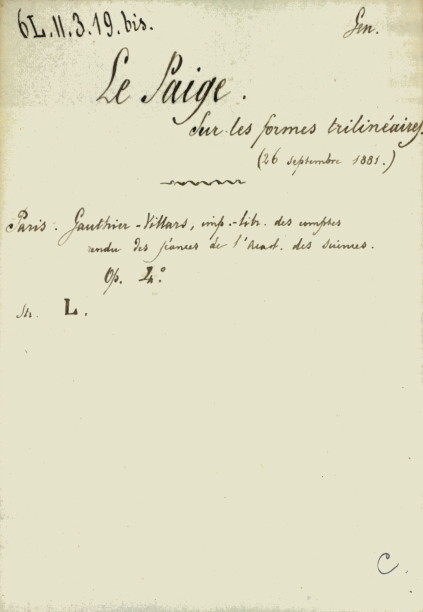 6L.11.3.19.bis.
Gen.
Le Paige.
Sur les formes trilinéaires.
(26 septembre 1881.)
Paris. Gauthier-Villars, imp.-lib. des comptes
rendu des séances de l'Acad. des sciences.
Op. 4°
L.
C.